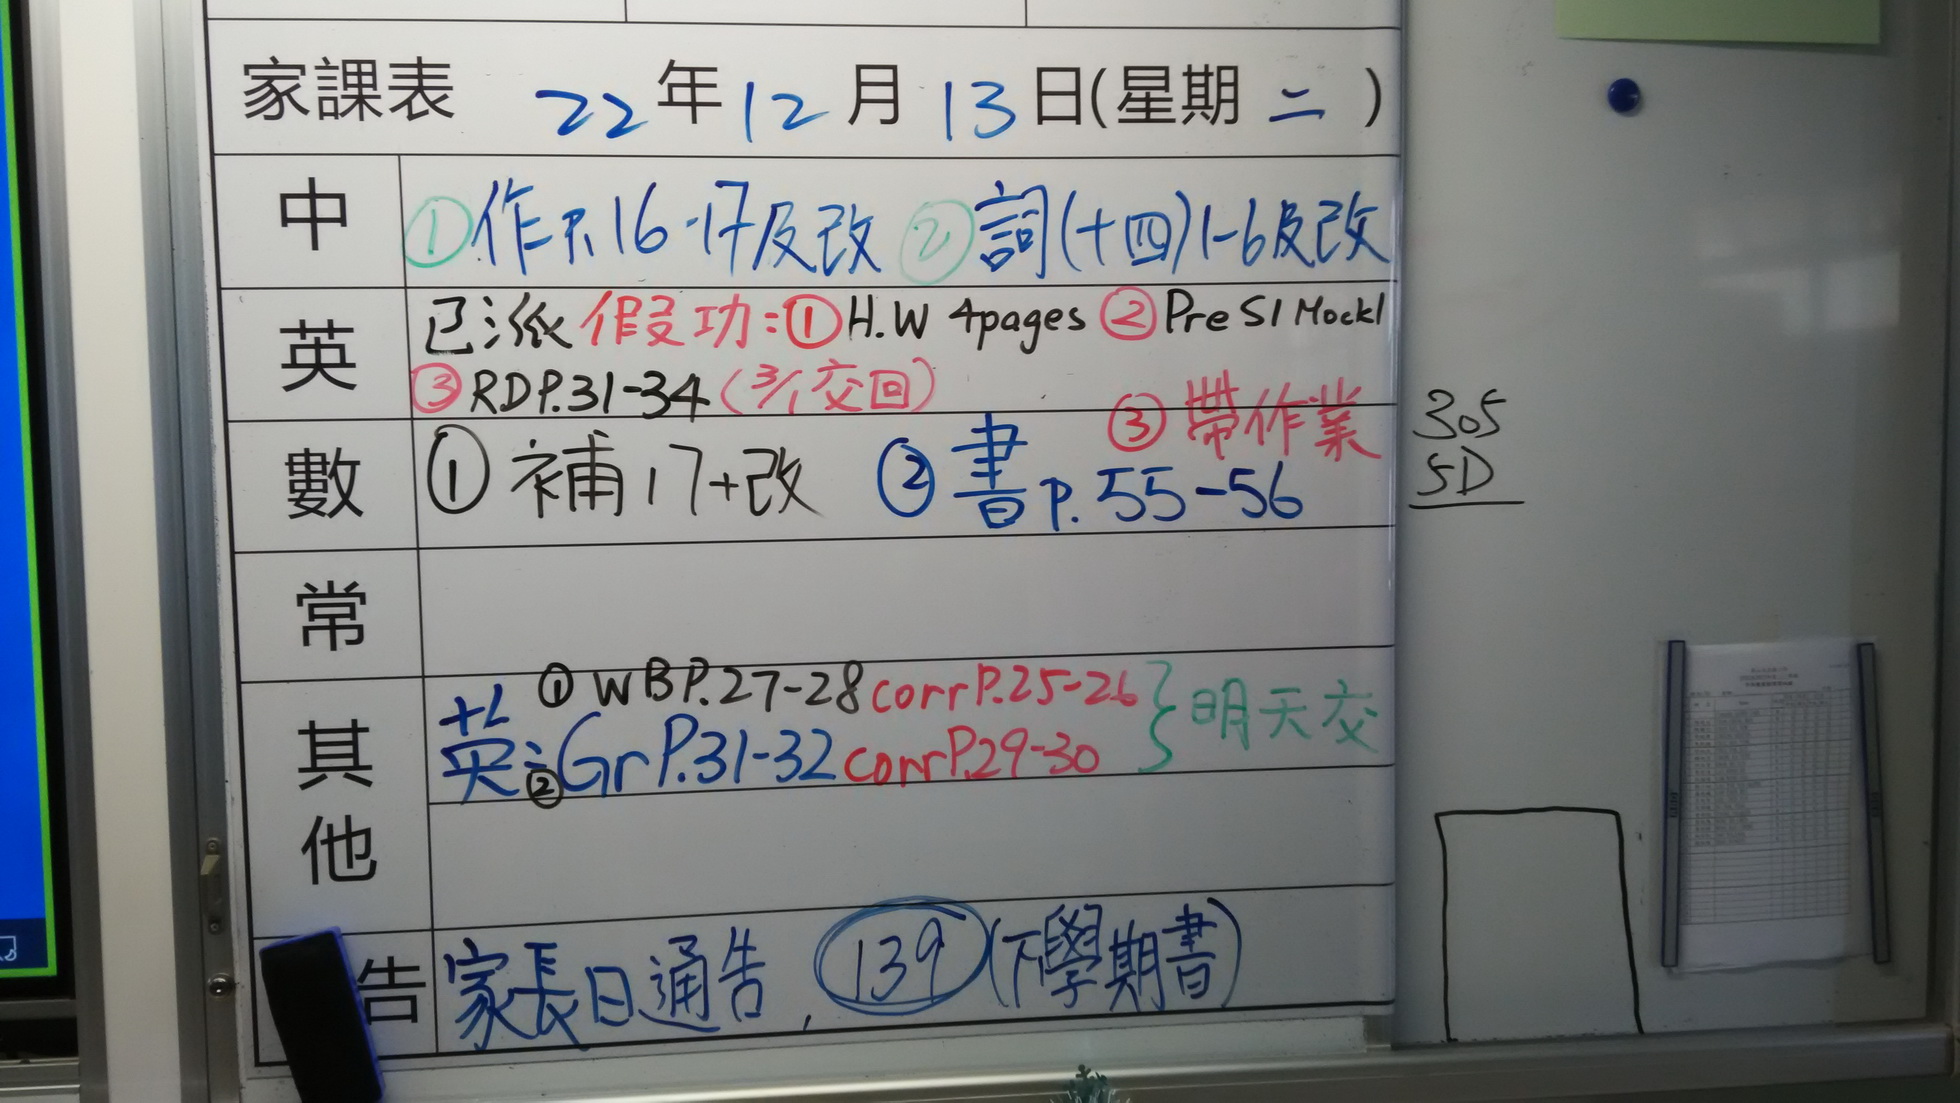 家課表 22年12月13日(星期二)
中 ①作P.16-17及改 ②詞(十四)1-6及改
英 已派假功:①H.W 4pages ②Pre S1 Mock1
③RDP.31-34(3/1交回)
數 ①補17+改 ②書P.55-56 ③帶作業
305
5D
常
其他 英: ①WBP.27-28 corrP.25-26
②GrP.31-32 corrP.29-30 } 明天交
告 家長日通告, 139(下學期書)